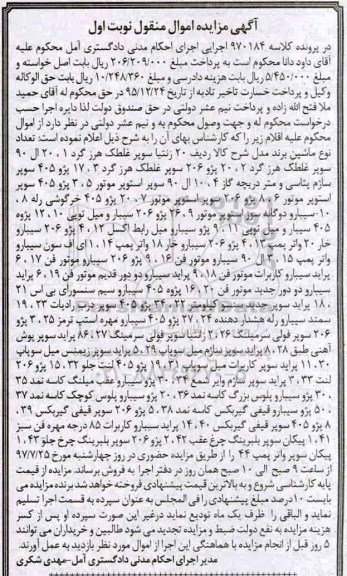 آگهی مزایده اموال منقول نوبت اول
در پرونده کلاسه ۹۷۰۱۸۴ اجرایی اجرای احکام مدنی دادگستری آمل محکوم علیه
آقای داود دانا محکوم است به پرداخت مبلغ ۲۰۶/۲۰۹/۰۰۰ ریال بابت اصل خواسته و
مبلغ ۵/۴۵۰/۰۰۰ ریال بابت هزینه دادرسی و مبلغ ۱۰/۲۴۸/۳۶۰ ریال بابت حق الوکاله
وکیل و پرداخت خسارت تاخیر تادیه از تاریخ ۹۵/۱۲/۲۴ در حق محکوم له آقای حمید
ملا فتح الله زاده و پرداخت نیم عشر دولتی در حق صندوق دولت لذا دایره اجرا حسب
درخواست محکوم له و جهت وصول محکوم به و نیم عشر دولتی در نظر دارد از اموال
محکوم علیه اقلام زیر را که کارشناس بهای آن را به شرح ذیل اعلام نموده است: تعداد
نوع ماشین برند مدل شرح کالا ردیف ۲۰ زنتیا سوپر غلطک هرز گرد ۰۱ ۲۰ ال ۹۰
سوپر غلطک هرز گرد ۰۲ ۲۰ پژو ۲۰۶ سوپر غلطک هرز گرد ۰۳ ۱۷ پژو ۴۰۵ سوپر
سازم پتاسی و متر دریچه گاز ۰۴ ۱۰ ال ۹۰ سوپر استوپر موتور ۰۵ ۳ پژو ۴۰۵ سوپر
استوپر موتور ۰۶ ۸ پژو ۲۰۶ سوپر استوپر موتور ۰۷ ۲۰ پژو ۴۰۵ خرگوشی رله ۰۸
۱۰-سیبارو دوگانه سوز سوپر موتور ۰۹ ۳۶ پژو ۲۰۶ سیبار و میل توپی ۰۱۰ ۱۲ پژوه
۴۰۵ سیبار و میل توپی ۰۱۱ ۹ پژو سیبارو میل رابط اکسل ۰۱۲ ۴ پژو ۲۰۶ سیبارو
خار ۲۰ واتر پمپ ۰۱۳ ۴ پژو ۲۰۶ سیبارو خار ۱۸ واتر پمپ ۰۱۴ ۱ ای اف سون سیبارو
واتر پمپ ۰۱۵ ۱ ال ۹۰ سیبارو موتور فن ۰۱۶ ۹ پژو ۲۰۶ سیبارو موتور فن ۰۱۷ ۶
پراید سیبارو کاربرات موتور فن ۰۱۸ ۹ پراید سیبارو دو دور قدیم موتور فن ۰۱۹ ۶ پراید
سیبارو دو دور جدید موتور فن ۰۲۰ ۱۶ پژوه ۴۰۵ سیبارو سیم سنسورای بی اس ۲۱
۰ ۱۸ پراید سوپر جدید سیم کیلومتر ۰۲۲ ۳۴ پژو ۴۰۵ سوپر درب رادیات ۰۲۳ ۱۹
سمند سیبارو رله هشدار دهنده ۰۲۴ ۲۷ پژو ۴۰۵ سیبارو مهره استپ ترمز ۰۲۵ ۳ پژو
۲۰۶ سوپر فولی سرمیلنگ ۰۲۶ ۲ زانتیا سوپر فولی سرمینگ ۰۲۷ ۸۶ پراید سوپر پوش
آهنی طبق ۰۲۸ ۸ پراید سوپر سازم میل سوپاپ ۰۲۹ ۵ پراید سوپر زیمنس میل سوپاپ
۰۳۰ ۱۱ پراید سوپر کاربرات میل سوپاپ ۰۳۱ ۱۰ پژو ۴۰۵ لنت جلو ۰۳۲ ۱۵ پژو ۲۰۶
لنت ۰۳۳ ۲ پراید سوپر سازم وایر شمع ۰۳۴ ۳۰ پژو سیبارو عقب میلنگ کاسه نمد ۳۵
۰ ۳۰ پژو سیبارو پلوس بزرگ کاسه نمد ۰۳۶ ۲۰ پژو سیبارو پلوس کوچک کاسه نمد ۳۷
۰ ۵۰ پژو سیبارو قیفی گیربکس کاسه نمد ۰۳۸ ۵ پژو ۲۰۶ سوپر قیفی گیربکس ۰۳۹
۸ پژو ۴۰۵ سوپر قیفی گیربکس ۰۴۰ ۱۴ پراید سیبارو کاربرات ۸۵ درجه مهره فن سبز
۰۴۱ ۱ پیکان سوپر بلبرینگ چرخ عقب ۰۴۲ ۲ پژو ۲۰۶ سوپر بلبرینگ چرخ جلو ۰۴۳ ۱
پیکان سوپر واتر پمپ ۴۴ را از طریق مزایده حضوری در روز چهارشنبه مورخ ۹۷/۷/۲۵
از ساعت ۹ صبح الی ۱۰ صبح همان روز در دفتر اجرا به فروش برساند. مزایده از قیمت
پایه کارشناسی شروع و به بالاترین قیمت پیشنهادی فروخته خواهد شد برنده مزایده می
بایست ۱۰ درصد مبلغ پیشنهادی را فی المجلس به عنوان سپرده به قسمت اجرا تسلیم
نماید و الباقی را ظرف یک ماه تودیع نماید در غیر این صورت سپرده او پس از کسر
هزینه مزایده به نفع دولت ضبط و مزایده تجدید می شود طالبین و خریداران می توانند
۵ روز قبل از انجام مزایده با هماهنگی این اجرا از اموال مورد نظر بازدید به عمل آورند.
مدیر اجرای احکام مدنی دادگستری آمل-مهدی شکری